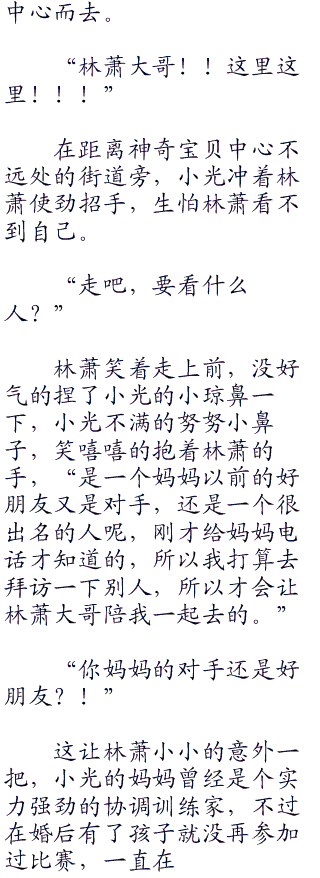 中心而去。
“林萧大哥！！这里这
里！！！”
在距离神奇宝贝中心不
远处的街道旁，小光冲着林
萧使劲招手，生怕林萧看不
到自己。
“走吧，要看什么
人？”
林萧笑着走上前，没好
气的捏了小光的小琼鼻一
下，小光不满的努努小鼻
子，笑嘻嘻的抱着林萧的
手，“是一个妈妈以前的好
朋友又是对手，还是一个很
出名的人呢，刚才给妈妈电
话才知道的，所以我打算去
拜访一下别人，所以才会让
林萧大哥陪我一起去的。”
“你妈妈的对手还是好
朋友？！”
这让林萧小小的意外一
把，小光的妈妈曾经是个实
力强劲的协调训练家，不过
在婚后有了孩子就没再参加
过比赛，一直在